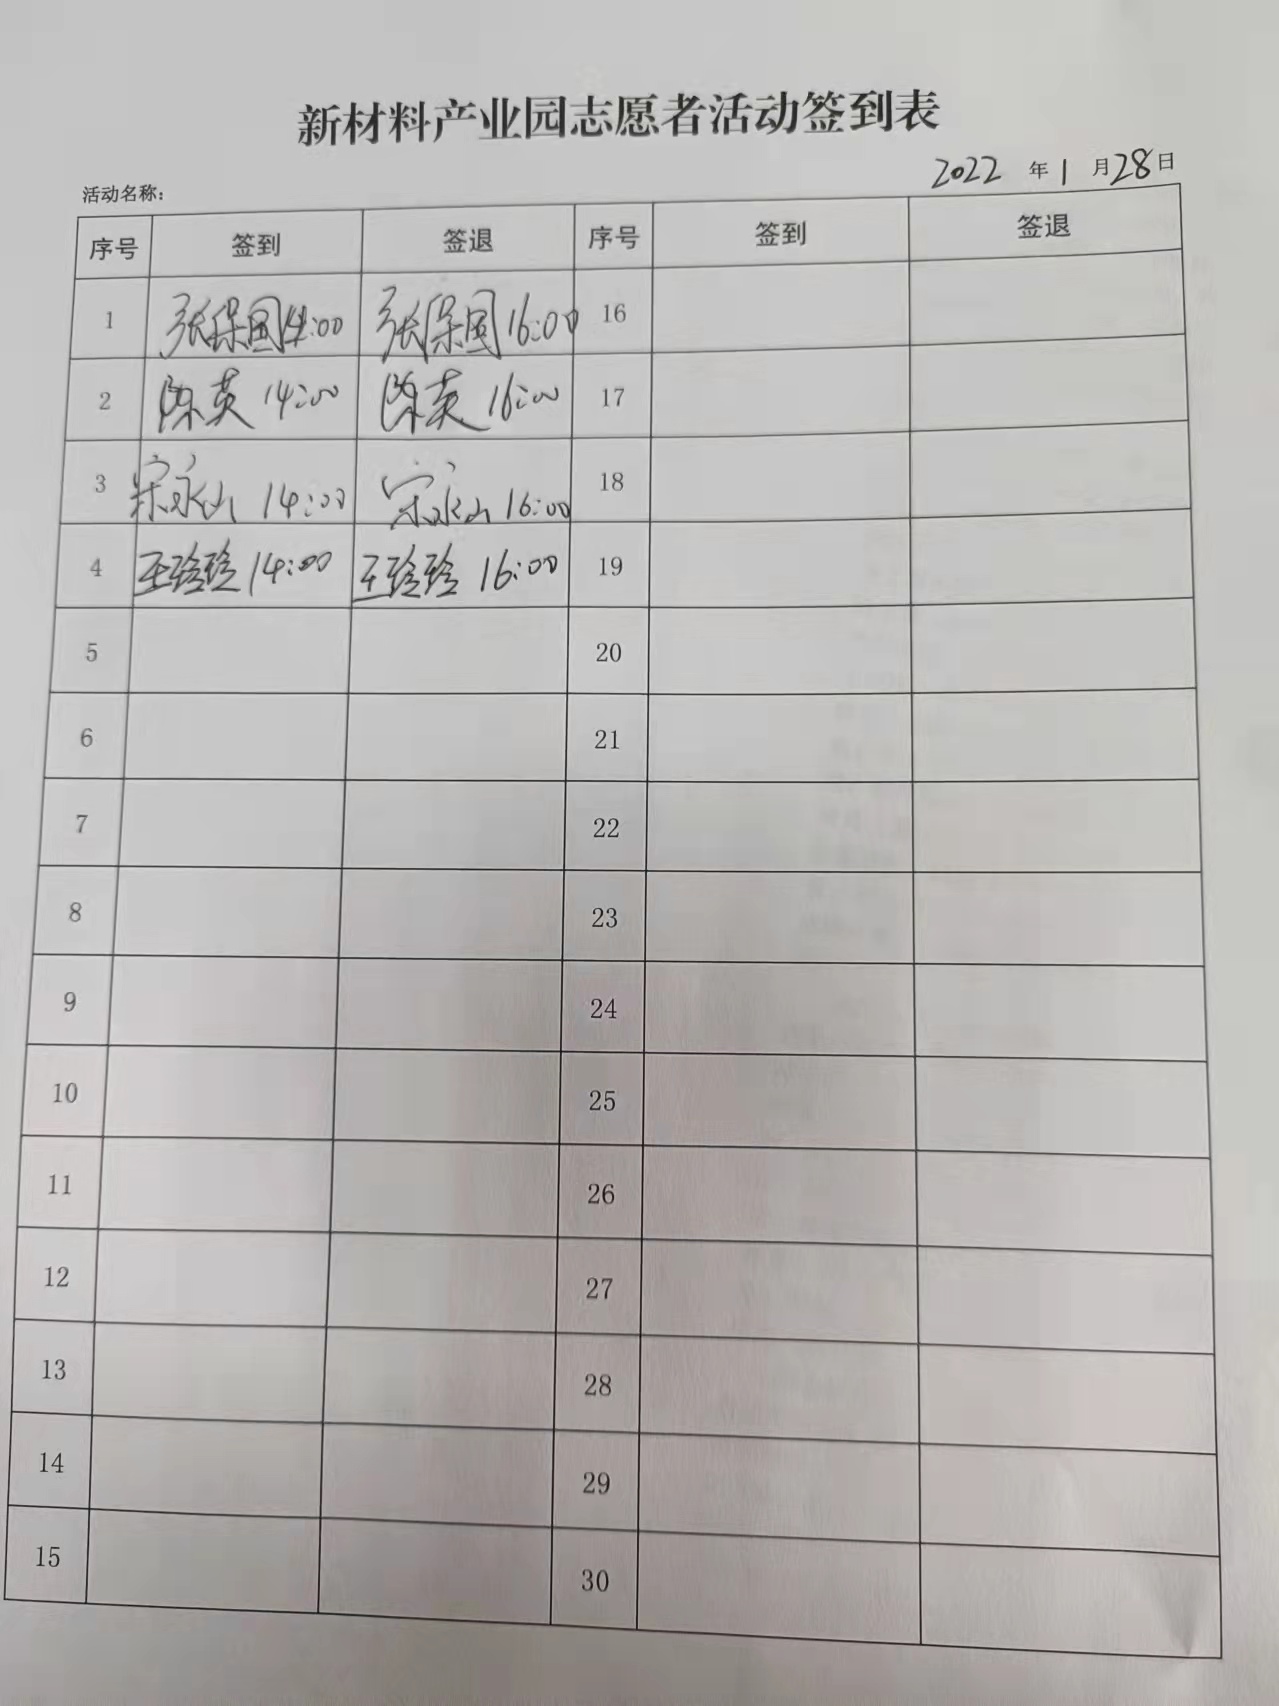 新材料产业园志愿者活动签到表
2022 年 1 月 28 日
活动名称:
序号 签到 签退 序号 签到 签退
1 张保国 14:00 张保国 16:00 16
2 陈英 14:00 陈英 16:00 17
3 宋永山 14:00 宋永山 16:00 18
4 王玲玲 14:00 王玲玲 16:00 19
5 20
6 21
7 22
8 23
9 24
10 25
11 26
12 27
13 28
14 29
15 30